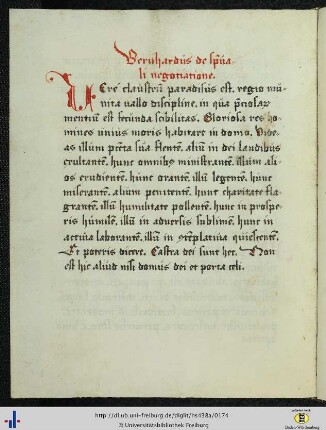 Bernhardus de sp̄ua
li negotiatione.
Uere claustrū paradisus est. regio mū
nita vallo discipline. in qua p̄ciosar̄
mentiū est fecunda Gloriosa res ho
mines unius moris habitare in domo. Vide
as illum pctā sua flentē. aliū in dei laudibus
exultantē. hunc omnibꝰ ministrantē. illum ali
os erudientē. hūc orantē. illū legentē. hunc
miserantē. alium penitentē. hunc charitate fla
grantē. illū humilitate pollentē. hunc in prospe
ris humilē. illū in adversis sublimē. hunc in
activa laborantē. illū in ꝯtēplativa quiescentē.
Et poteris dicere. Castra dei sunt hec. Non
est hic aliud nisi domus dei et porta celi.
http://dl.ub.uni-freiburg.de/diglit/hs438a/0174
© Universitätsbibliothek Freiburg